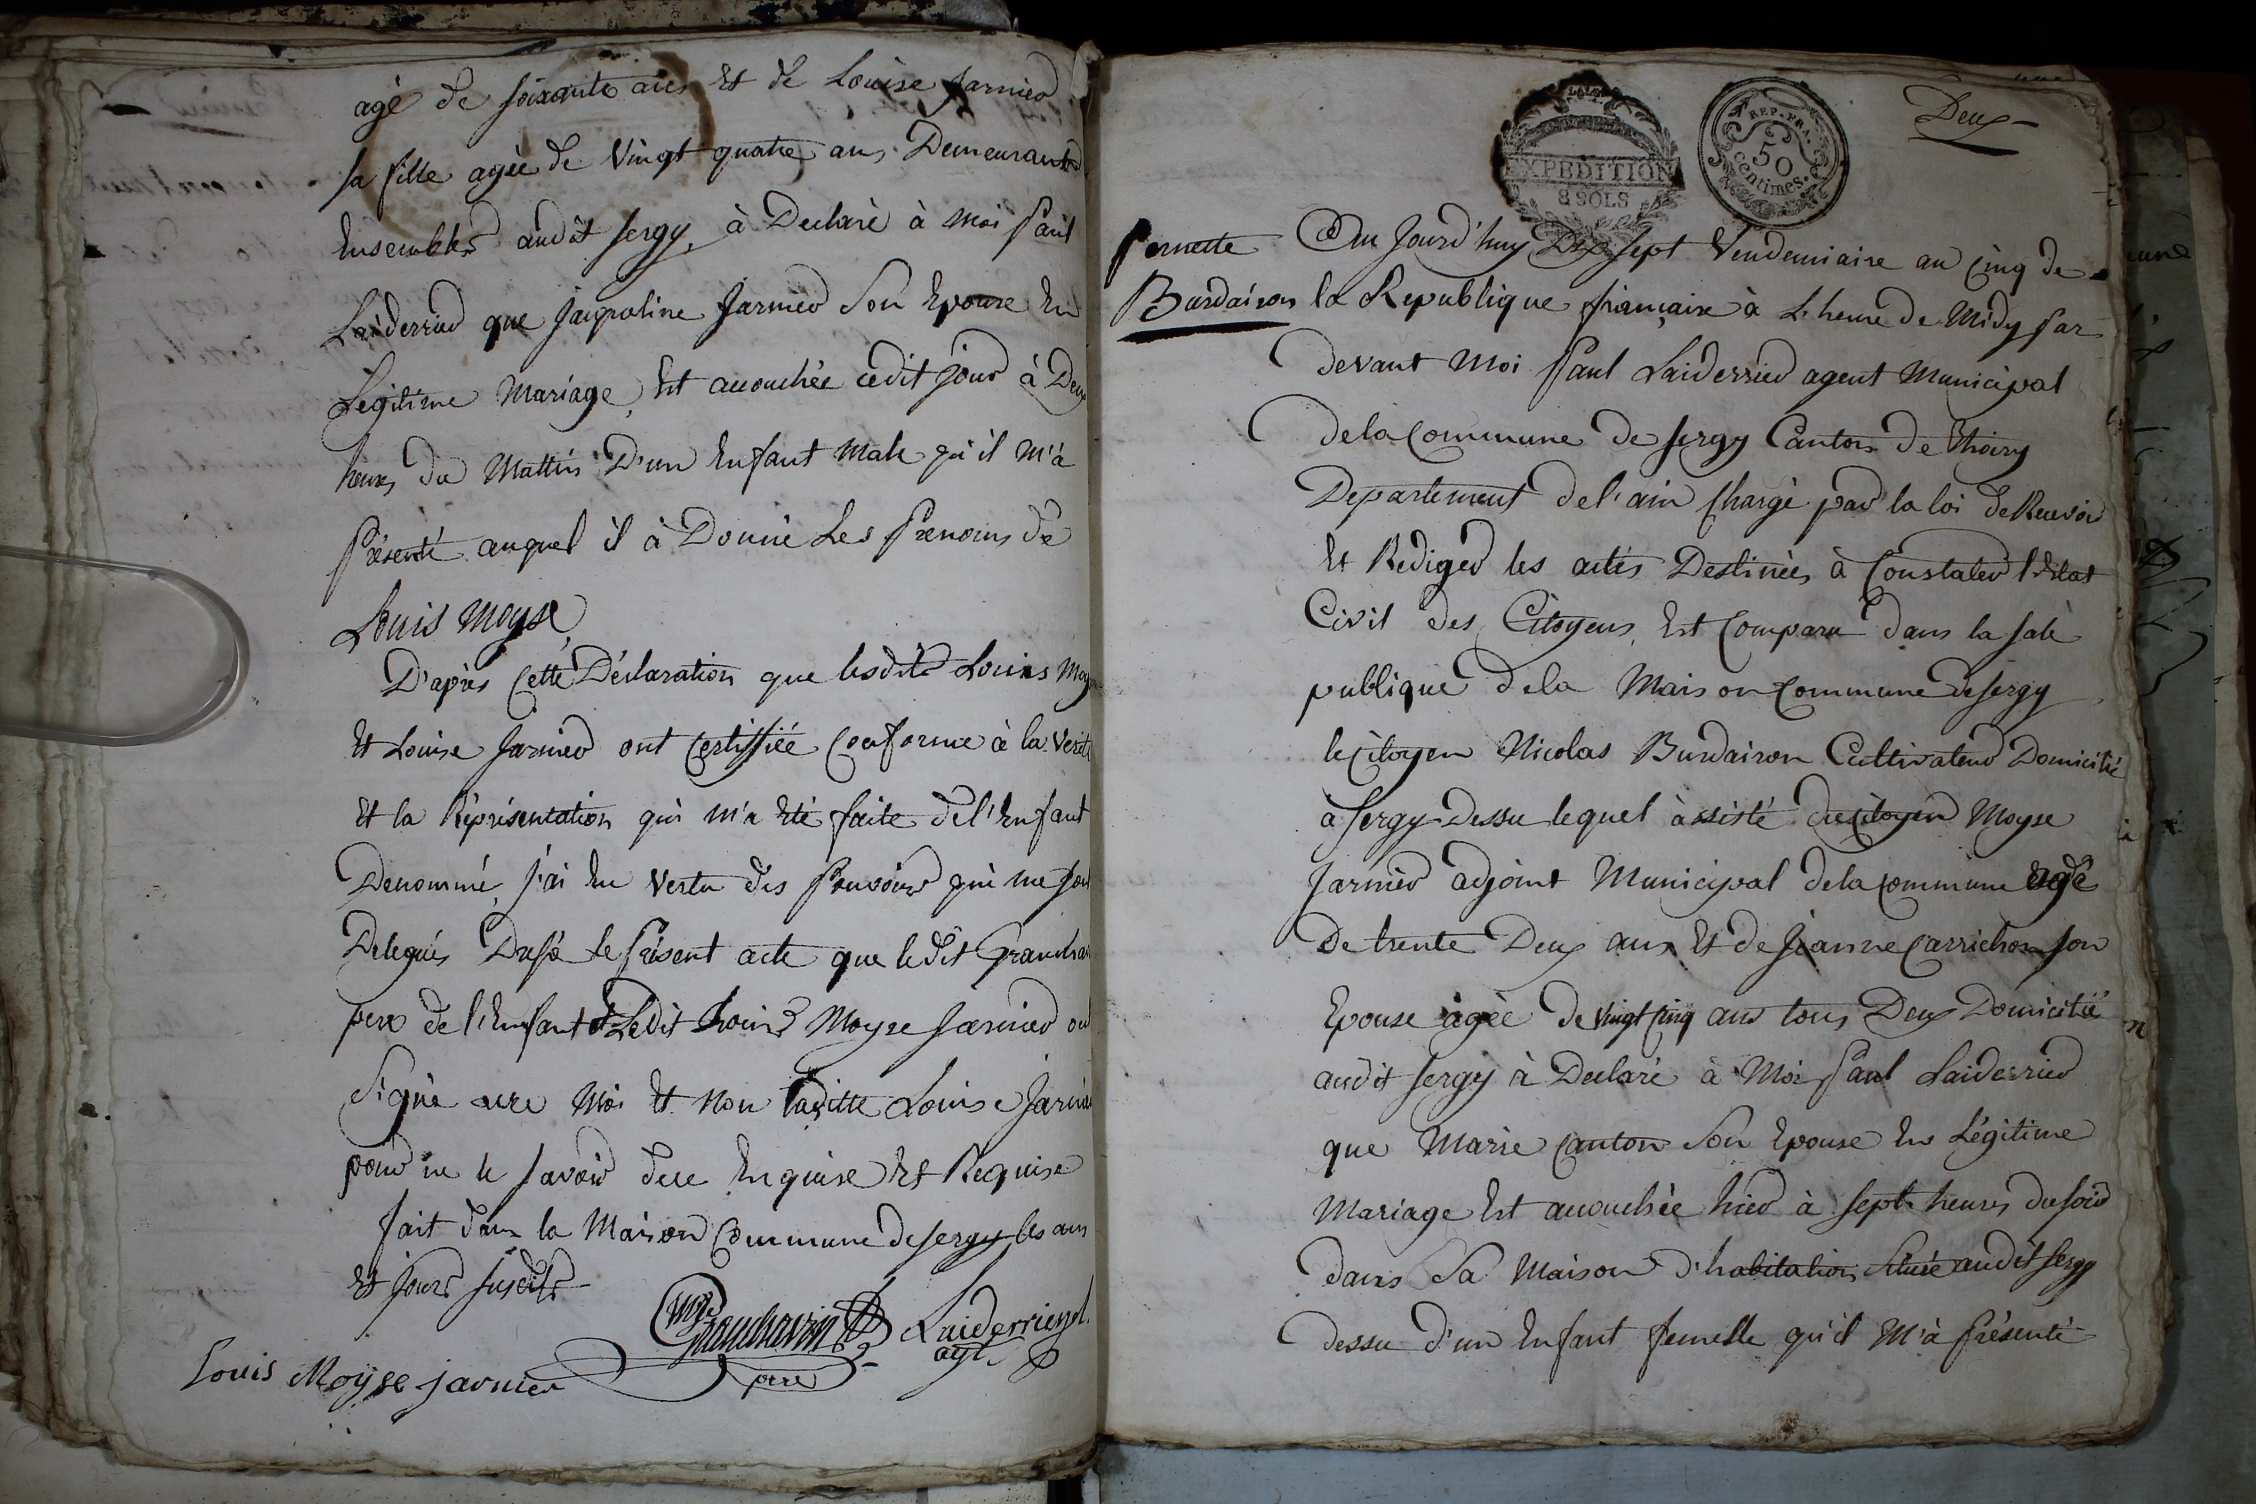 agé de soixante ans Et de Louise Jarnier
sa fille agée de Vingt quatre ans Demeurants
Ensembles audit Sergy, à Declaré à Moi Paul
Laiderrier que Jaqueline Jarnier Son Epouse En
Legitime Mariage, Est accouchée cedit jour à Deux
heures du Mattin D'un Enfant Male qu'il M'à
Présenté auquel il à Donné Les Prenoms de
Louis Moyse
D'après Cette Déclaration que lesdits Louis Moyse
Et Louise Jarnier ont Certiffiée Conforme à la Verité
Et la Réprésentation qui M'a Eté faite de l'Enfant
Denommé, j'ai En Vertu des Pouvoirs qui me sont
Delegués Dressé le Présent acte que ledit Granchavin
pere de l'Enfant Et Ledit Louis Moyse Jarnier ont
Signé avec Moi Et Non laditte Louise Jarnier
pour ne le savoir dece Enquise Et Requise
fait dans la Maison Commune de Sergy les ans
Et Jours Susdits
Granchavin Laiderrier
pere agt
Louis Moyse jarnier
EXPEDITION
8 SOLS
REP. FRA.
50
centimes.
Deux
Pernette
Burdairon
Au Jourd'huy Dix Sept Vendemiaire an Cinq de
la Republique française à L'heure de Midy par
devant Moi Paul Laiderrier agent Municipal
de la Commune de Sergy Canton de Thoiry
Departement de l'ain Chargé par la loi de Recevoir
Et Rediger les actes Destinés à Constater l'Etat
Civil des Citoyens, Est Comparu dans la sale
publique de la Maison Commune de Sergy
le Citoyen Nicolas Burdairon Cultivateur Domicilié
à Sergy Dessu lequel àssisté du Citoyen Moyse
Jarnier adjoint Municipal de la Commune agé
de trente Deux ans Et de Jeanne Carrichon son
Epouse agée de Vingt Cinq ans tous Deux Domicilié
audit Sergy à Declaré à Moi Paul Laiderrier
que Marie Canton Son Epouse En Légitime
Mariage Est accouchée hier à Sept heures du soir
dans Sa Maison d'habitation Située audit Sergy
dessu d'un Enfant femelle qu'il M'à Présenté